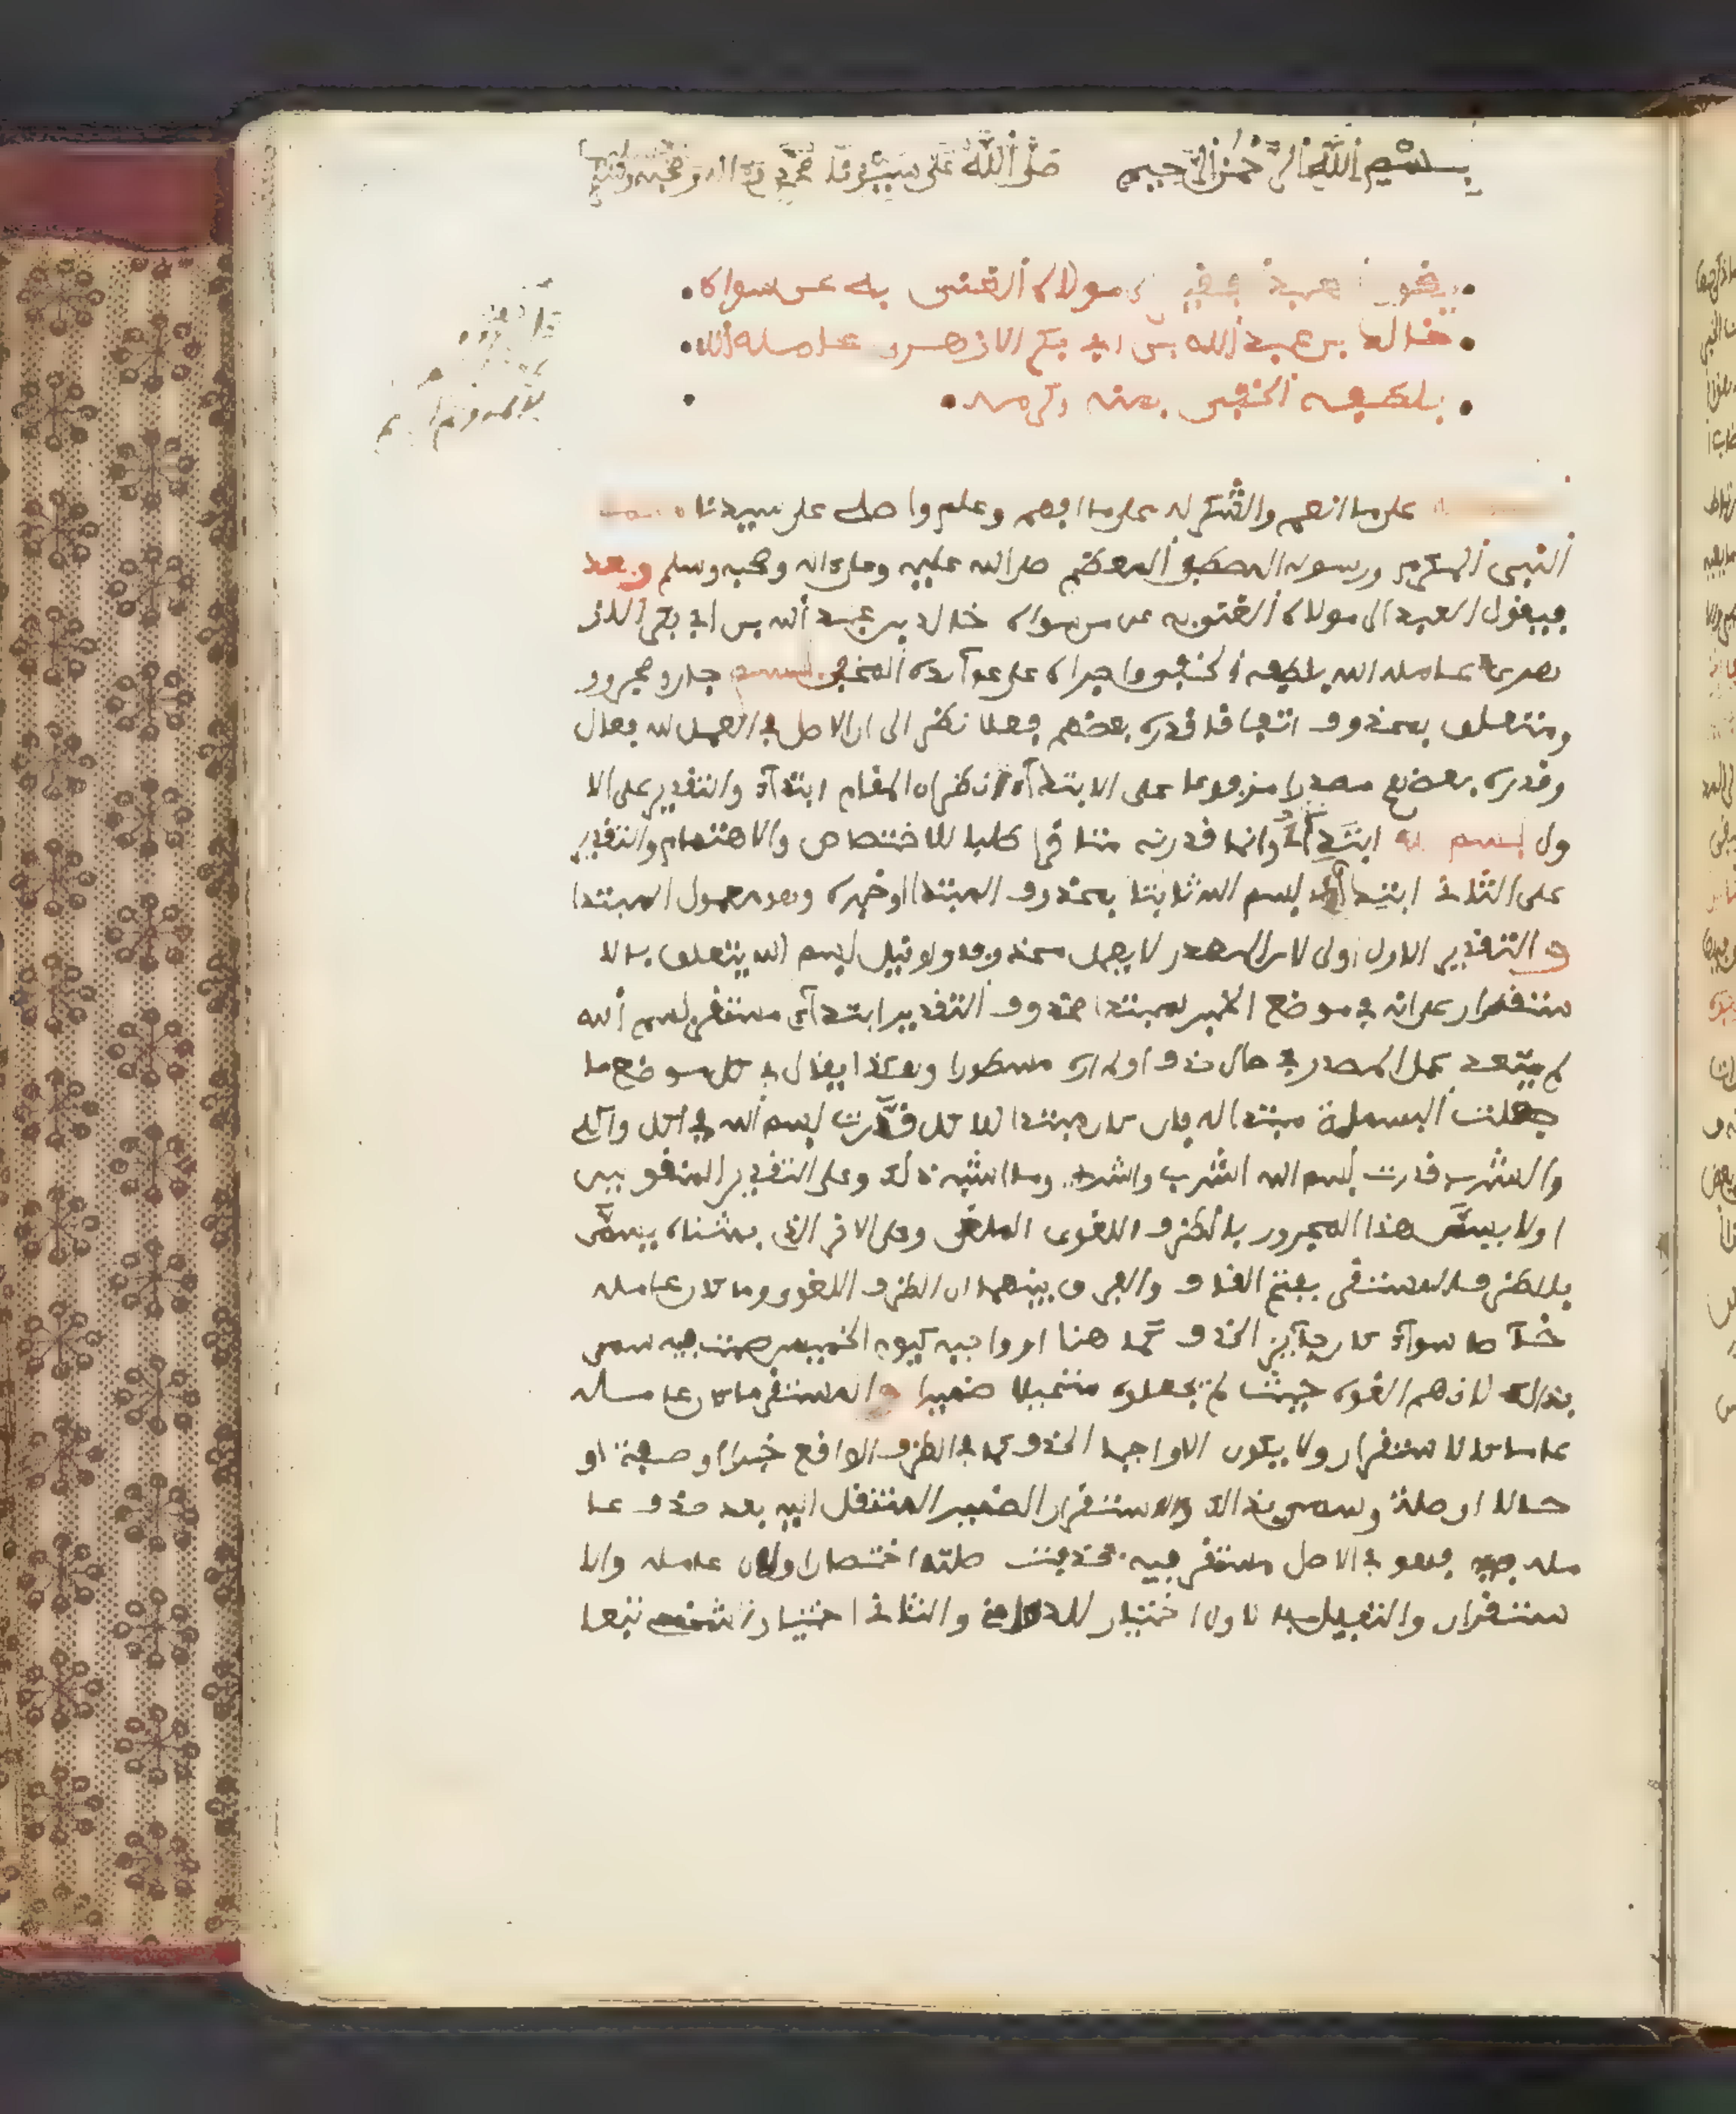 بسم الله الرحمن الرحيم صلى الله على سيدنا محمد وءاله وصحبه
يقول عبيد فقير مولاه الغني به عن سواه
خالد بن عبد الله بن ابي بكر الازهري عامله الله
بلطفه الخفي بمنه وكرمه
على ما انعم والشكر له على ما الهم وعلم واصلي على سيدنا محمد
النبي المكرم ورسوله المصطفى المعظم صلى الله عليه وعلى ءاله وصحبه وسلم وبعد
فيقول العبد الى مولاه الغني به عن من سواه خالد بن عبد الله بن ابي بكر الاز
هري عامله الله بلطفه الخفي واجراه على عوآئده الحفي بسم جار ومجرور
ومتعلق بمحذوف اتفاقا قدره بعضهم فعلا نظرا الى ان الاصل في العمل للافعال
وقدره بعضهم مصدرا مرفوعا على الابتدآء نظرا ان المقام ابتدآء والتقدير على الا
ول بسم الله ابتدآ وانما قدرته متاخرا طلبا للاختصاص والاهتمام والتقدير
على الثاني ابتدآئي بسم الله ثابتا بمحذوف المبتدا وخبره وهو معمول المبتدا
والتقدير الاول اولى لان المصدر لا يعمل محذوفا ولو قيل بسم الله يتعلق بالا
ستقرار على انه في موضع الخبر لمبتدا محذوف التقدير ابتدآئي مستقر بسم الله
لم يبعد عمل المصدر في حال حذف او مذكورا وهكذا يقال في كل موضع ما
جعلت البسملة مبتدا له فان كان مبتدا للاكل قدرت بسم الله في اكل واكلي
والشرب قدرت بسم الله اشرب واشرب وما اشبه ذلك وعلى التقدير المنقو بين
اولا يسمى هذا المجرور بالظرف اللغوي الملغى وعلى الاخر الذي بحثناه يسمى
بالظرف المستقر بفتح القاف والفرق بينهما ان الظرف اللغوي وما كان عامله
خآصا سوآء كان جآئز الحذف كما هنا او واجبه كيوم الخميس صمت فيه سمي
بذالك لانهم الغوه حيث لم يجعلوه متحملا ضميرا والمستقر ما كان عامله
عاما كالاستقرار ولا يكون الا واجب الحذف كما في الظرف الواقع خبرا او صفة او
حالا او صلة وسمي بذالك لاستقرار الضمير المنتقل اليه بعد حذف عا
مله فيه فهو في الاصل مستقر فيه فحذفت صلته اختصارا ولان عامله والا
ستقرار والتعليل الاول اختيار للدمامني والثاني اختيار شخص تبعا